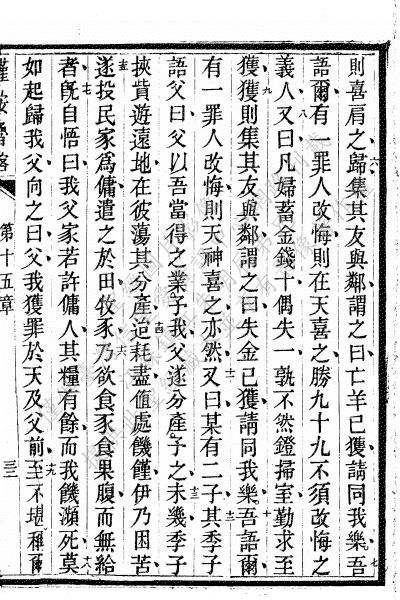 則喜肩之歸集其友與鄰謂之曰亡羊已獲請同我樂吾
語爾有一罪人改悔則在天喜之勝九十九不須改悔之
義人又曰凡婦蓄金錢十偶失一孰不然鐙掃室勤求至
獲獲則集其友與鄰謂之曰失金已獲請同我樂吾語爾
有一罪人改悔則天神喜之亦然又曰某有二子其季子
語父曰父以吾當得之業予我父遂分產予之未幾季子
挾貲遊遠地在彼蕩其分產迨耗盡値處饑饉伊乃困苦
遂投民家爲傭遣之於田牧豕乃欲食豕食果腹而無給
者旣自悟曰我父家若許傭人其糧有餘而我饑瀕死莫
如起歸我父向之曰父我獲罪於天及父前至不堪稱爾
第十五章
三
六
七
八
九
十
十一
十二
十三
十四
十五
十六
十七
十八
十九